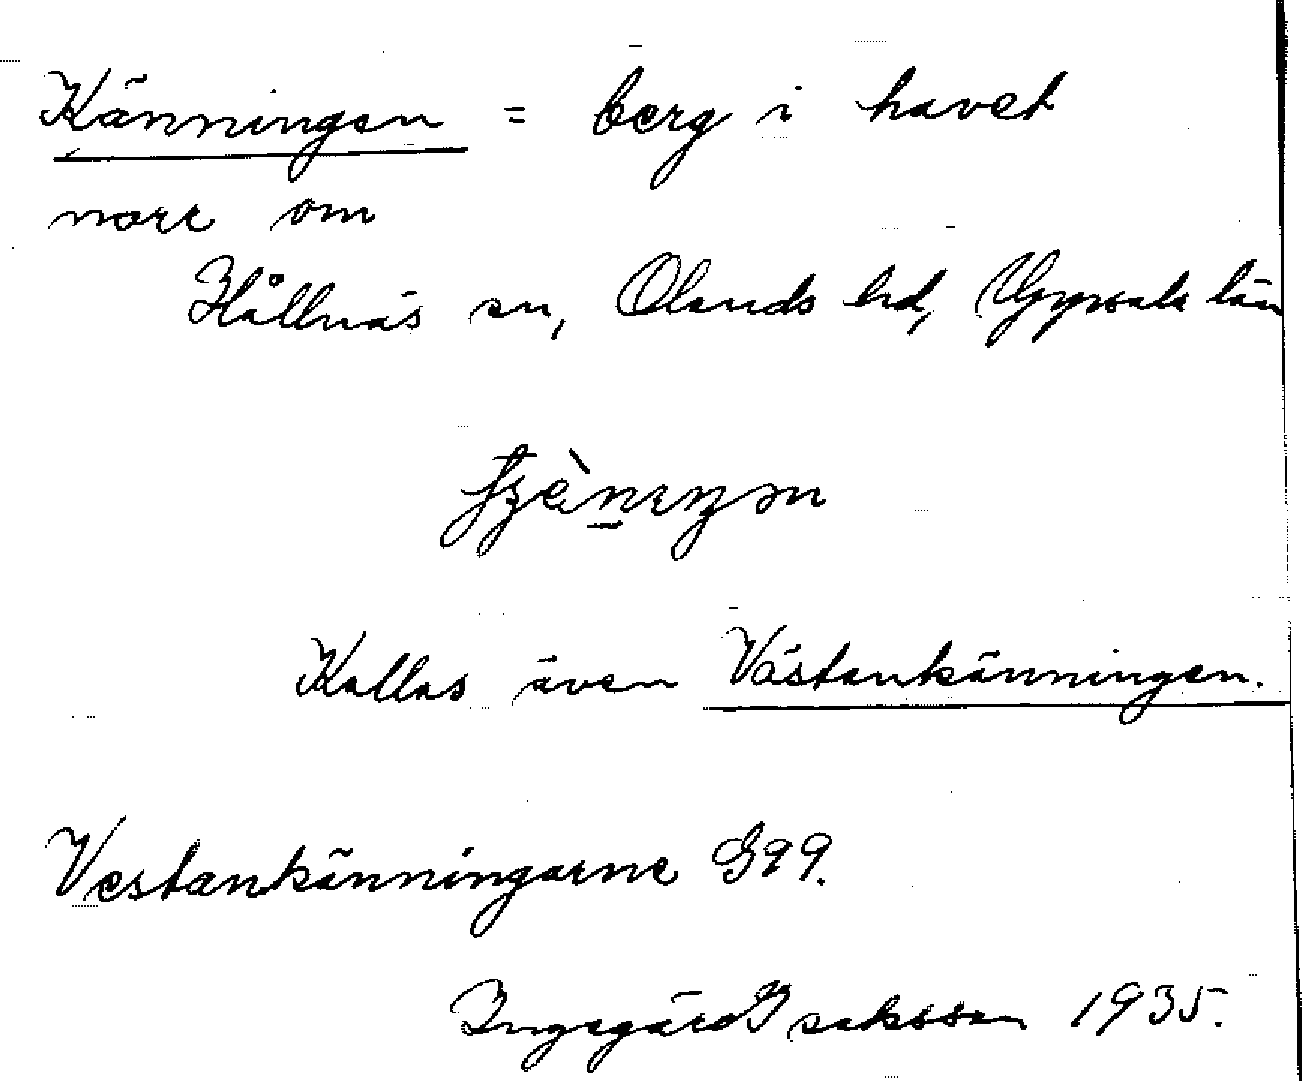 Känningen = berg i havet
norr om
Hållnäs sn, Olands hd, Uppsala län
Kallas även Västankänningen.
Vestankänningarne G99.
Ingegärd Isaksson 1935.